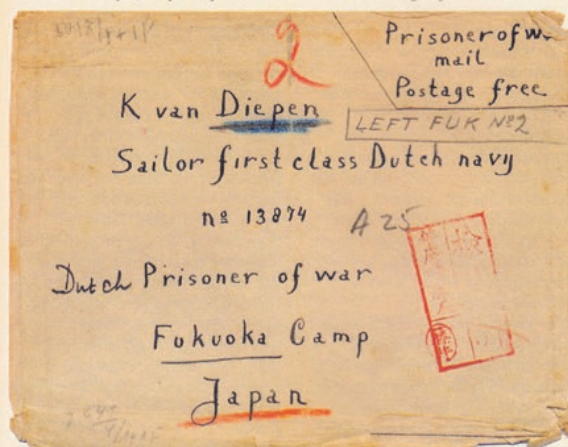 2
Prisoner of w.
mail
Postage free
K van Diepen
LEFT FUK Nº2
Sailor first class Dutch navy
nº 13874
A 25
Dutch Prisoner of war
Fukuoka Camp
Japan